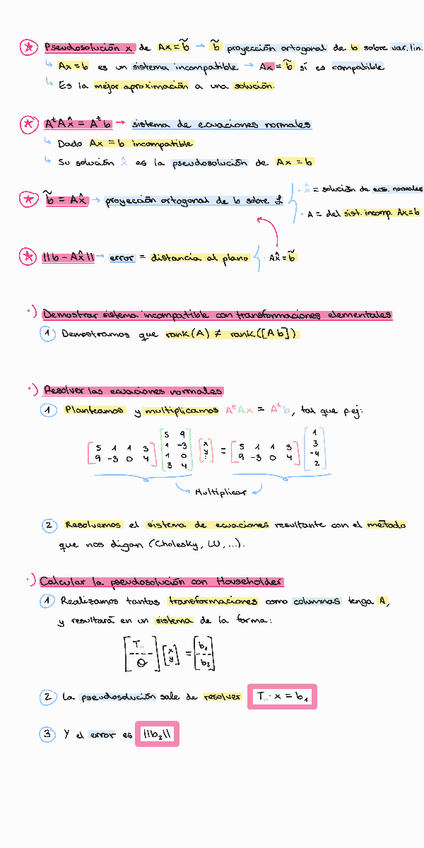 * Pseudosolución x de Ax = b̃ → b̃ proyección ortogonal de b sobre var. lin.
↳ Ax = b es un sistema incompatible → Ax = b̃ sí es compatible
↳ Es la mejor aproximación a una solución.
* AᵗAx̂ = Aᵗb → sistema de ecuaciones normales
↳ Dado Ax = b incompatible
↳ Su solución x̂ es la pseudosolución de Ax = b
* b̃ = Ax̂ → proyección ortogonal de b sobre L
· x̂ = solución de ecs. normales
· A = del sist. incomp. Ax = b
* ||b - Ax̂|| → error = distancia al plano
· Ax̂ = b̃
·) Demostrar sistema incompatible con transformaciones elementales
1 Demostramos que rank(A) ≠ rank([A b])
·) Resolver las ecuaciones normales
1 Planteamos y multiplicamos AᵗAx = Aᵗb, tal que p.ej:
[5 1 1 3; 9 -3 0 4] [5 9; 1 -3; 1 0; 3 4] [x; y] = [5 1 1 3; 9 -3 0 4] [1; 3; -4; 2]
Multiplicar
2 Resolvemos el sistema de ecuaciones resultante con el método
que nos digan (Cholesky, LU, ...).
·) Calcular la pseudosolución con Householder
1 Realizamos tantas transformaciones como columnas tenga A,
y resultará en un sistema de la forma:
[T; 0] [x; y] = [b₁; b₂]
2 La pseudosolución sale de resolver T · x = b₁
3 Y el error es ||b₂||